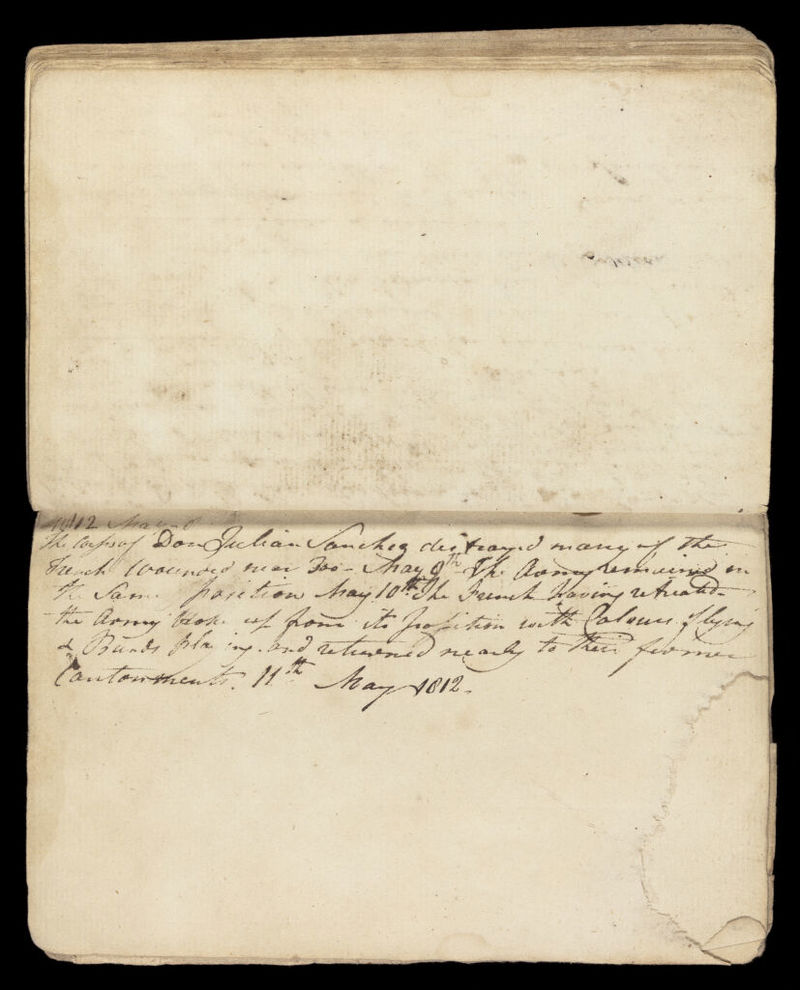 1812 May 8
The Corps of Don Julian Sanchez destroy'd many of the
French Wounded near 300 - May 9th The Army remained in
the Same Position May 10th The French having retreated
the Army broke up from its Position with Colours flying
& Bands playing and returned nearly to their former
Cantonments. 11th May 1812.